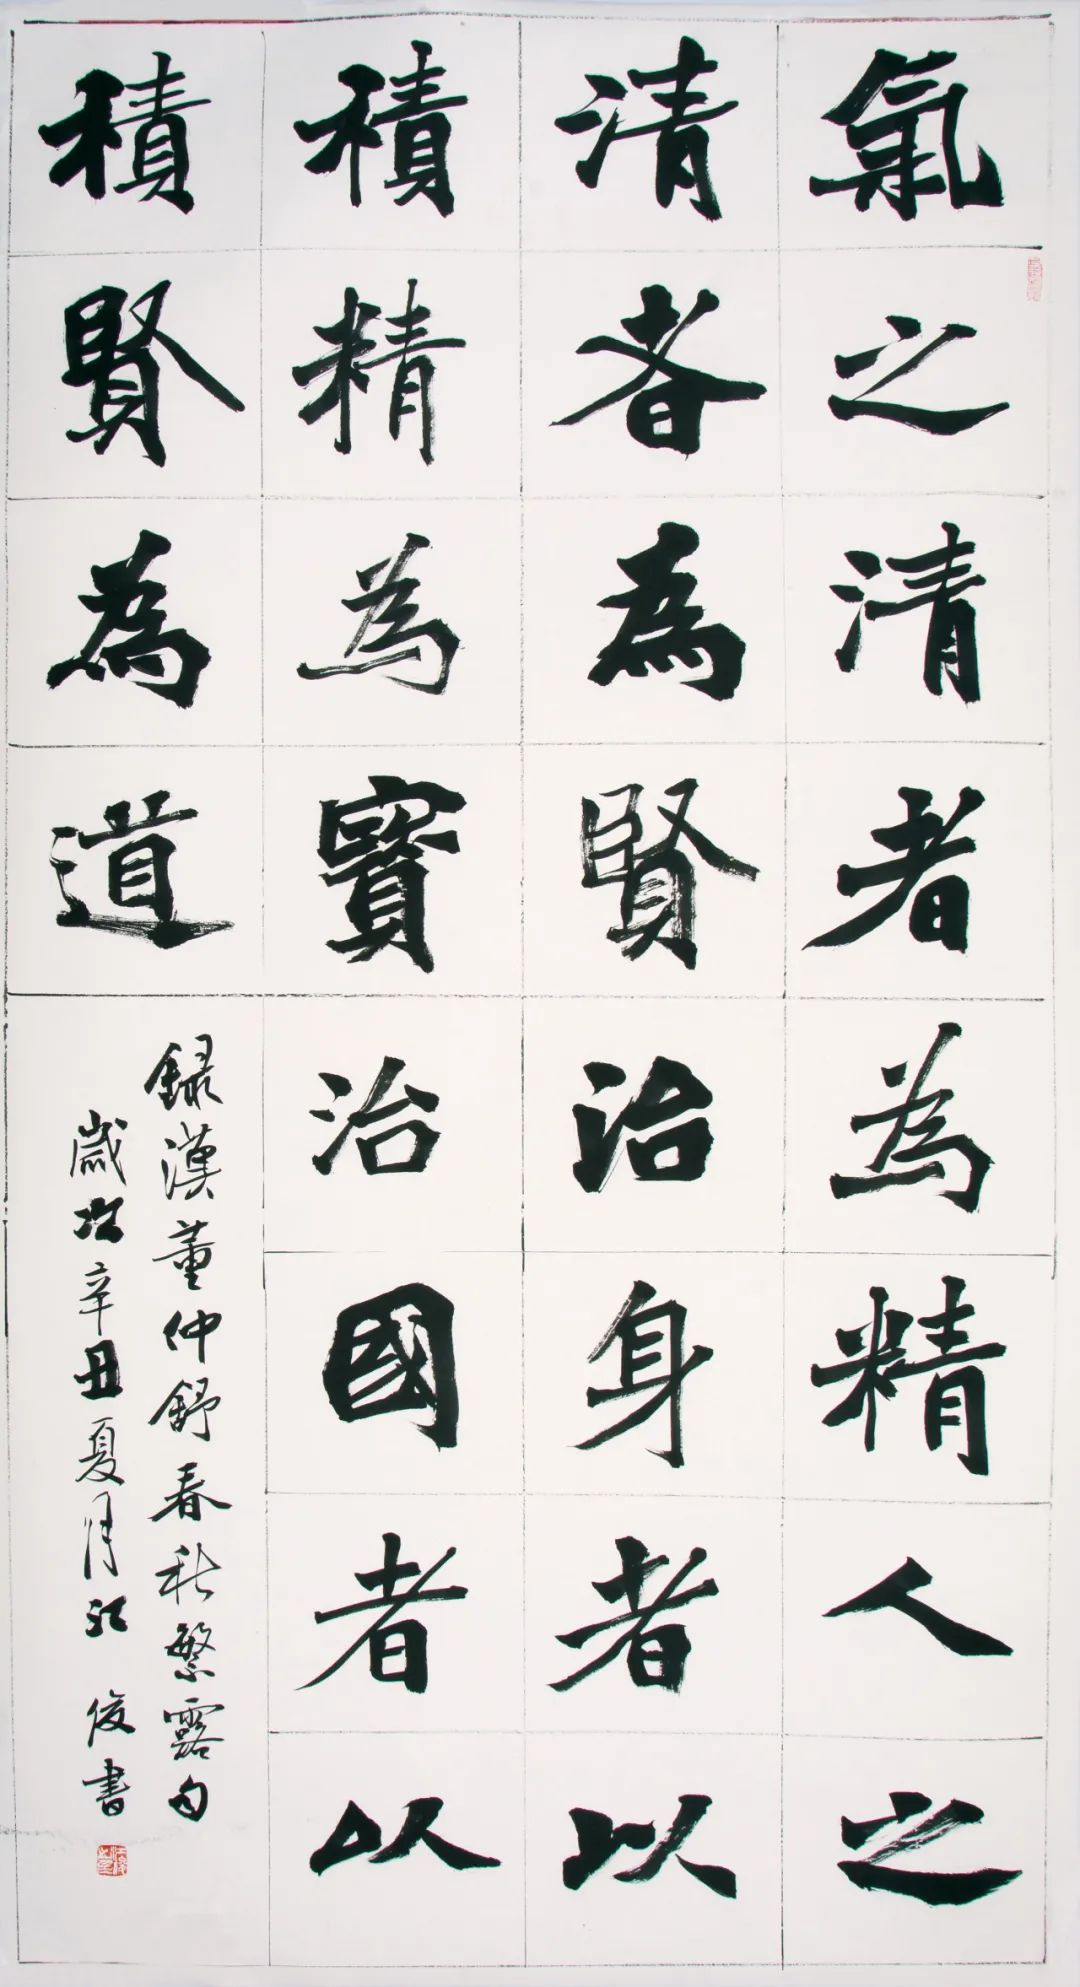 氣之清者為精人之
清者為賢治身者以
積精為寶治國者以
積賢為道
録漢董仲舒春秋繁露句
歲次辛丑夏月江俊書